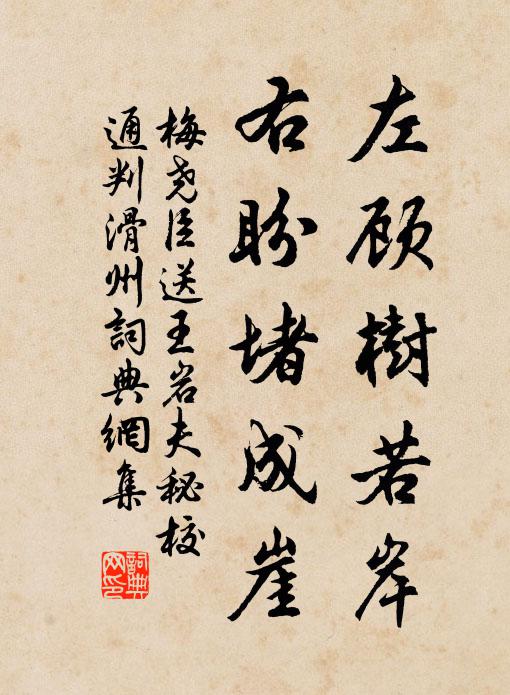 左顾樹若岸
右盼堵成崖
梅尧臣送王岩夫秘校
通判滑州詞典網集
詞典网印